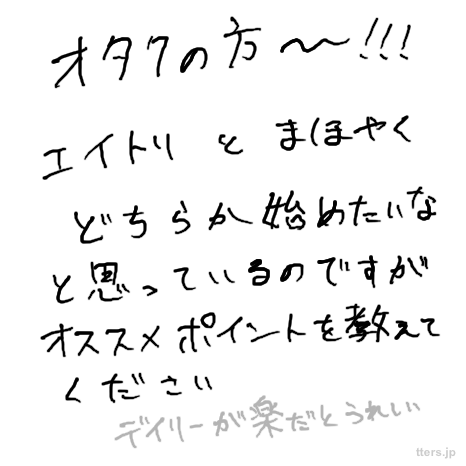 オタクの方〜!!!
エイトリ と まほやく
どちらか始めたいな
と思っているのですが
オススメポイントを教えて
ください
デイリーが楽だとうれしい
tters.jp